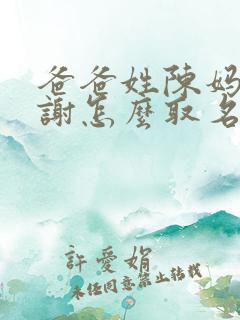 爸爸姓陳妈
謝怎麼取名
許愛娟
未经同意禁止转载